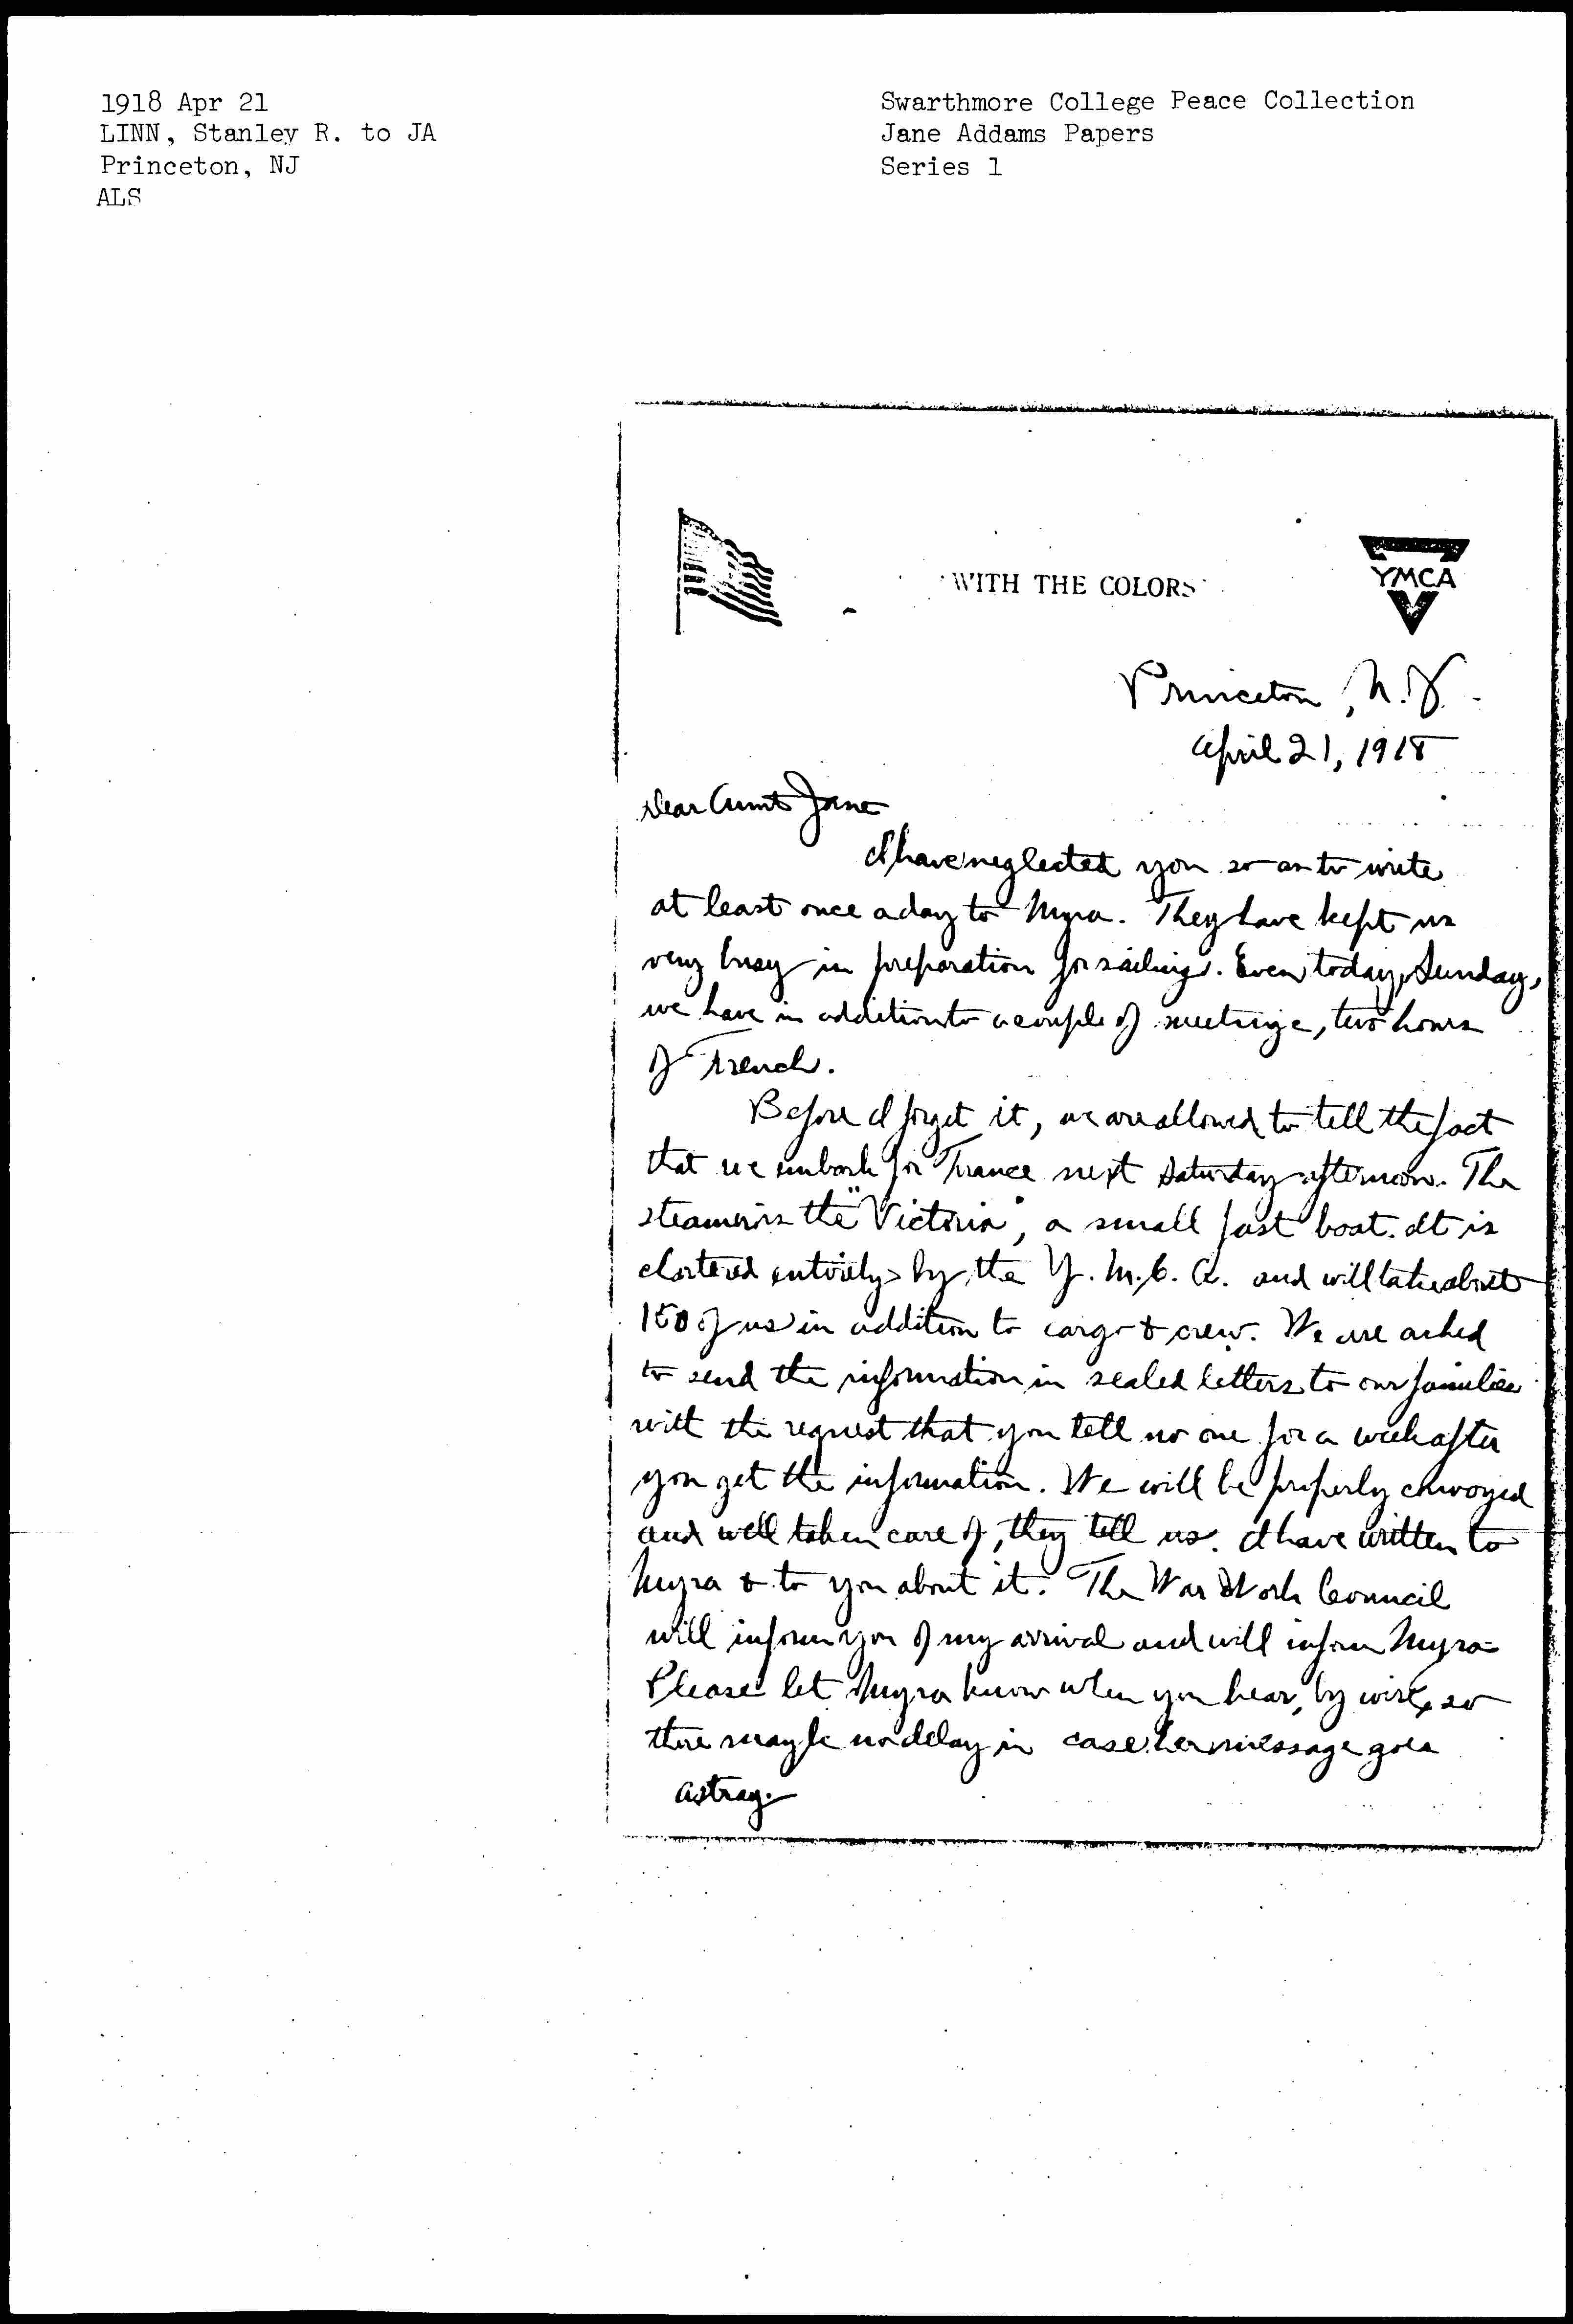 1918 Apr 21
LINN, Stanley R. to JA
Princeton, NJ
ALS
Swarthmore College Peace Collection
Jane Addams Papers
Series 1
"WITH THE COLORS"
YMCA
Princeton, N.J.
April 21, 1918
Dear Aunt Jane
I have neglected you so as to write
at least once a day to Myra. They have kept us
very busy in preparation for sailing. Even today, Sunday,
we have in addition to a couple of meetings, two hours
of French.
Before I forget it, we are allowed to tell the fact
that we embark for France next Saturday afternoon. The
steamer is the "Victoria", a small fast boat. It is
chartered entirely by the Y.M.C.A. and will take about
150 of us in addition to cargo & crew. We are asked
to send the information in sealed letters to our families
with the request that you tell no one for a week after
you get the information. We will be properly convoyed
and well taken care of, they tell us. I have written to
Myra & to you about it. The War Work Council
will inform you of my arrival and will inform Myra
Please let Myra know when you hear, by wire, so
there may be no delay in case her message goes
astray.